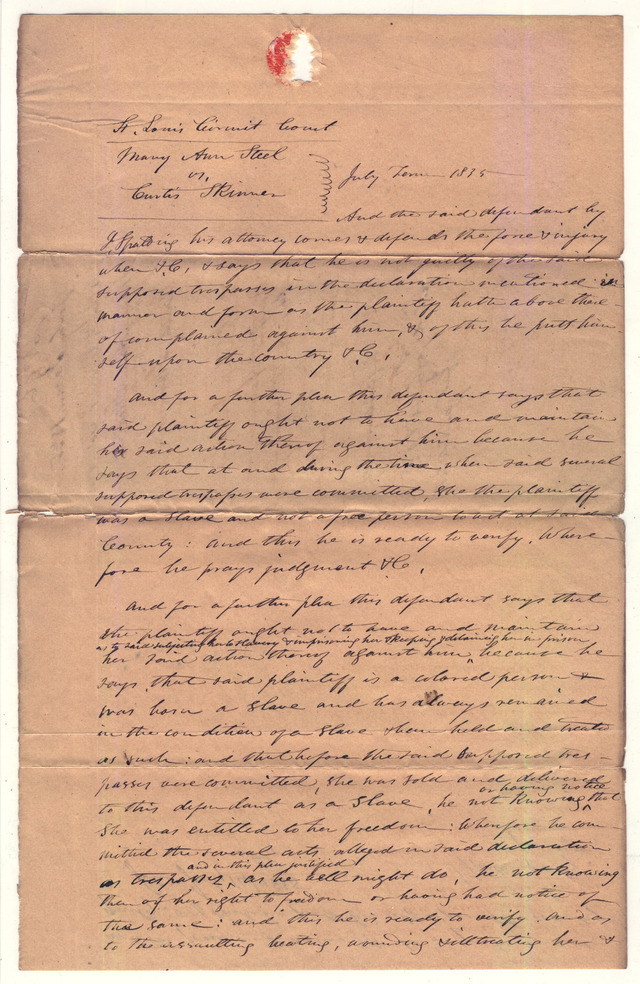 St. Louis Circuit Court
Mary Ann Steel
vs.
Curtis Skinner
July Term 1835
And the said defendant by
J. Spalding his attorney comes & defends the force & injury
when &C, & says that he is not guilty of the said
supposed trespasses in the declaration mentioned in
manner and form as the plaintiff hath above there-
of complained against him, & of this he putts him-
self upon the country &C.
And for a further plea this defendant says that
said plaintiff ought not to have and maintain
her said action thereof against him because he
says that at and during the time, when said several
supposed trespasses were committed, she the plaintiff
was a slave and not a free person to wit at said
County: and this he is ready to verify. Where-
fore he prays judgment &C.
And for a further plea this defendant says that
the plaintiff ought not to have and maintain
as to said subjecting her to slavery & imprisoning her & keeping & detaining her in prison
her said action thereof against him, because he
says, that said plaintiff is a colored person &
was born a slave and has always remained
in the condition of a slave & been held and treated
as such: and that before the said supposed tres-
passes were committed, she was sold and delivered
or having notice
to this defendant as a slave, he not knowing that
she was entitled to her freedom: Wherefore he com-
mitted the several acts alleged in said declaration
and in this plea justified
as trespasses, as he well might do, he not knowing
then of her right to freedom or having had notice of
the same: and this he is ready to verify. And as
to the assaulting beating, wounding & illtreating her &